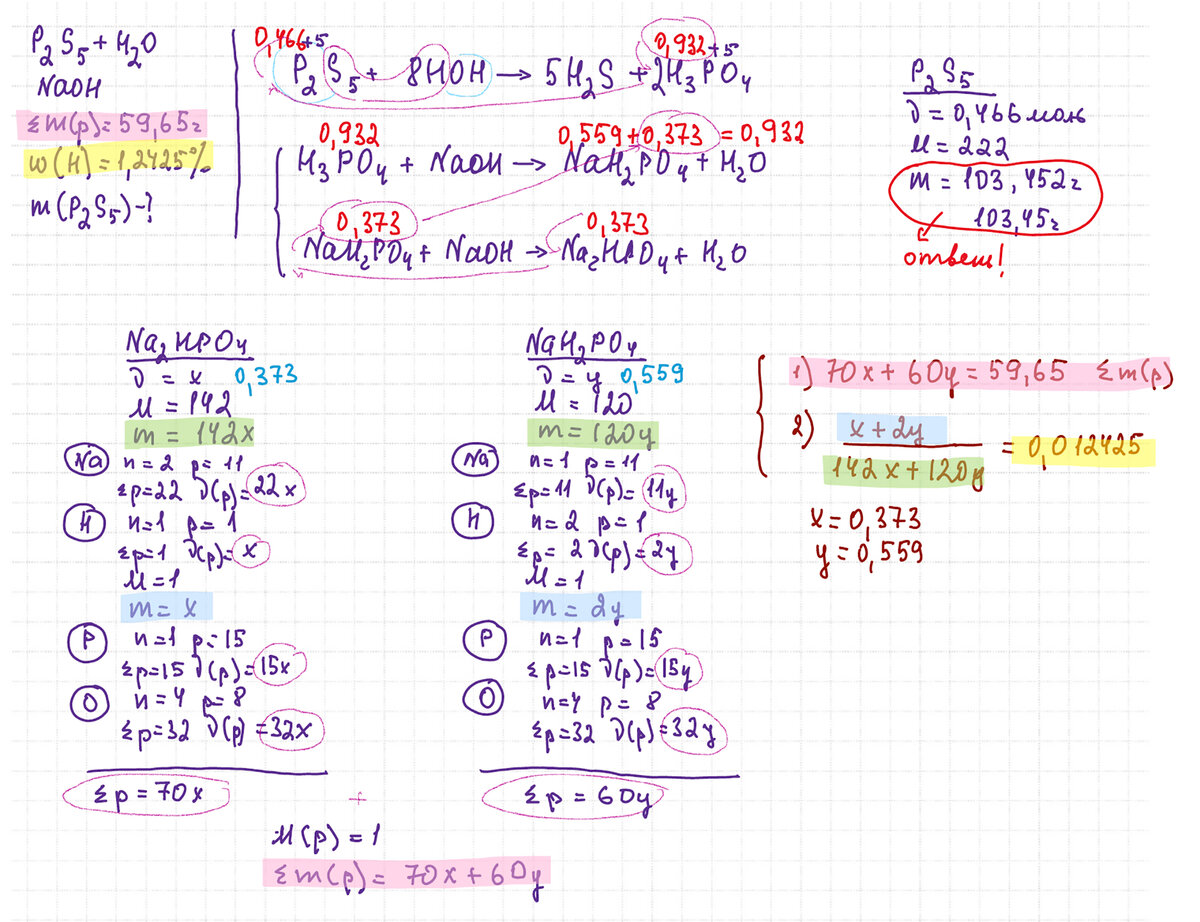 P₂S₅ + H₂O
NaOH
Σm(p) = 59,65г
w(H) = 1,2425%
m(P₂S₅) - ?
0,466 +5 0,932 +5
P₂S₅ + 8HOH → 5H₂S + 2H₃PO₄
0,932 0,559 + 0,373 = 0,932
H₃PO₄ + NaOH → NaH₂PO₄ + H₂O
0,373 0,373
NaH₂PO₄ + NaOH → Na₂HPO₄ + H₂O
P₂S₅
ν = 0,466 моль
M = 222
m = 103,452г
103,45г
ответ!
Na₂HPO₄
ν = x 0,373
M = 142
m = 142x
Na n = 2 p = 11
Σp = 22 ν(p) = 22x
H n = 1 p = 1
Σp = 1 ν(p) = x
M = 1
m = x
P n = 1 p = 15
Σp = 15 ν(p) = 15x
O n = 4 p = 8
Σp = 32 ν(p) = 32x
Σp = 70x
NaH₂PO₄
ν = y 0,559
M = 120
m = 120y
Na n = 1 p = 11
Σp = 11 ν(p) = 11y
H n = 2 p = 1
Σp = 2 ν(p) = 2y
M = 1
m = 2y
P n = 1 p = 15
Σp = 15 ν(p) = 15y
O n = 4 p = 8
Σp = 32 ν(p) = 32y
Σp = 60y
+
M(p) = 1
Σm(p) = 70x + 60y
1) 70x + 60y = 59,65 Σm(p)
2) x + 2y
= 0,012425
142x + 120y
x = 0,373
y = 0,559